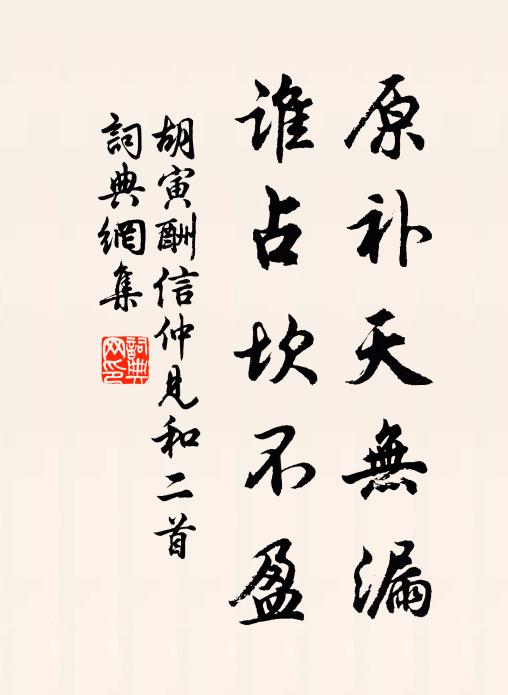 原补天無漏
谁占坎不盈
胡寅酬信仲見和二首
詞典網集
詞典網印